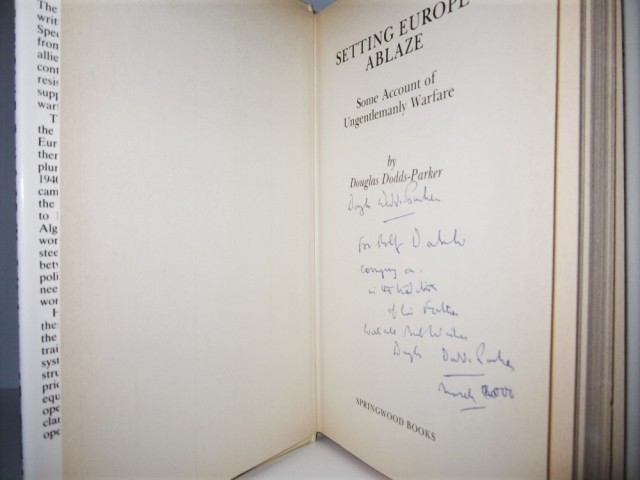 The
writ
Spec
from
allie
cont
resi
supp
war
T
the
Eur
ther
plur
1940
cam
the
to
Alg
wor
stee
betw
poli
nee
wor
H
the
the
trai
syst
stru
pri
equ
ope
clar
ope
SETTING EUROPE
ABLAZE
Some Account of
Ungentlemanly Warfare
by
Douglas Dodds-Parker
Douglas Dodds-Parker
For
carrying on
in the tradition
of his Father
with all Best Wishes
Douglas Dodds Parker
March 2000
SPRINGWOOD BOOKS